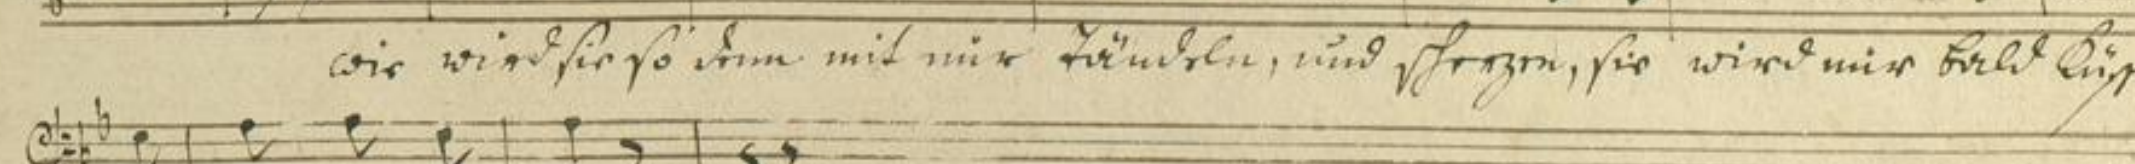 wie wird sie so denn mit mir tändeln, und scherzen, sie wird mir bald Küß